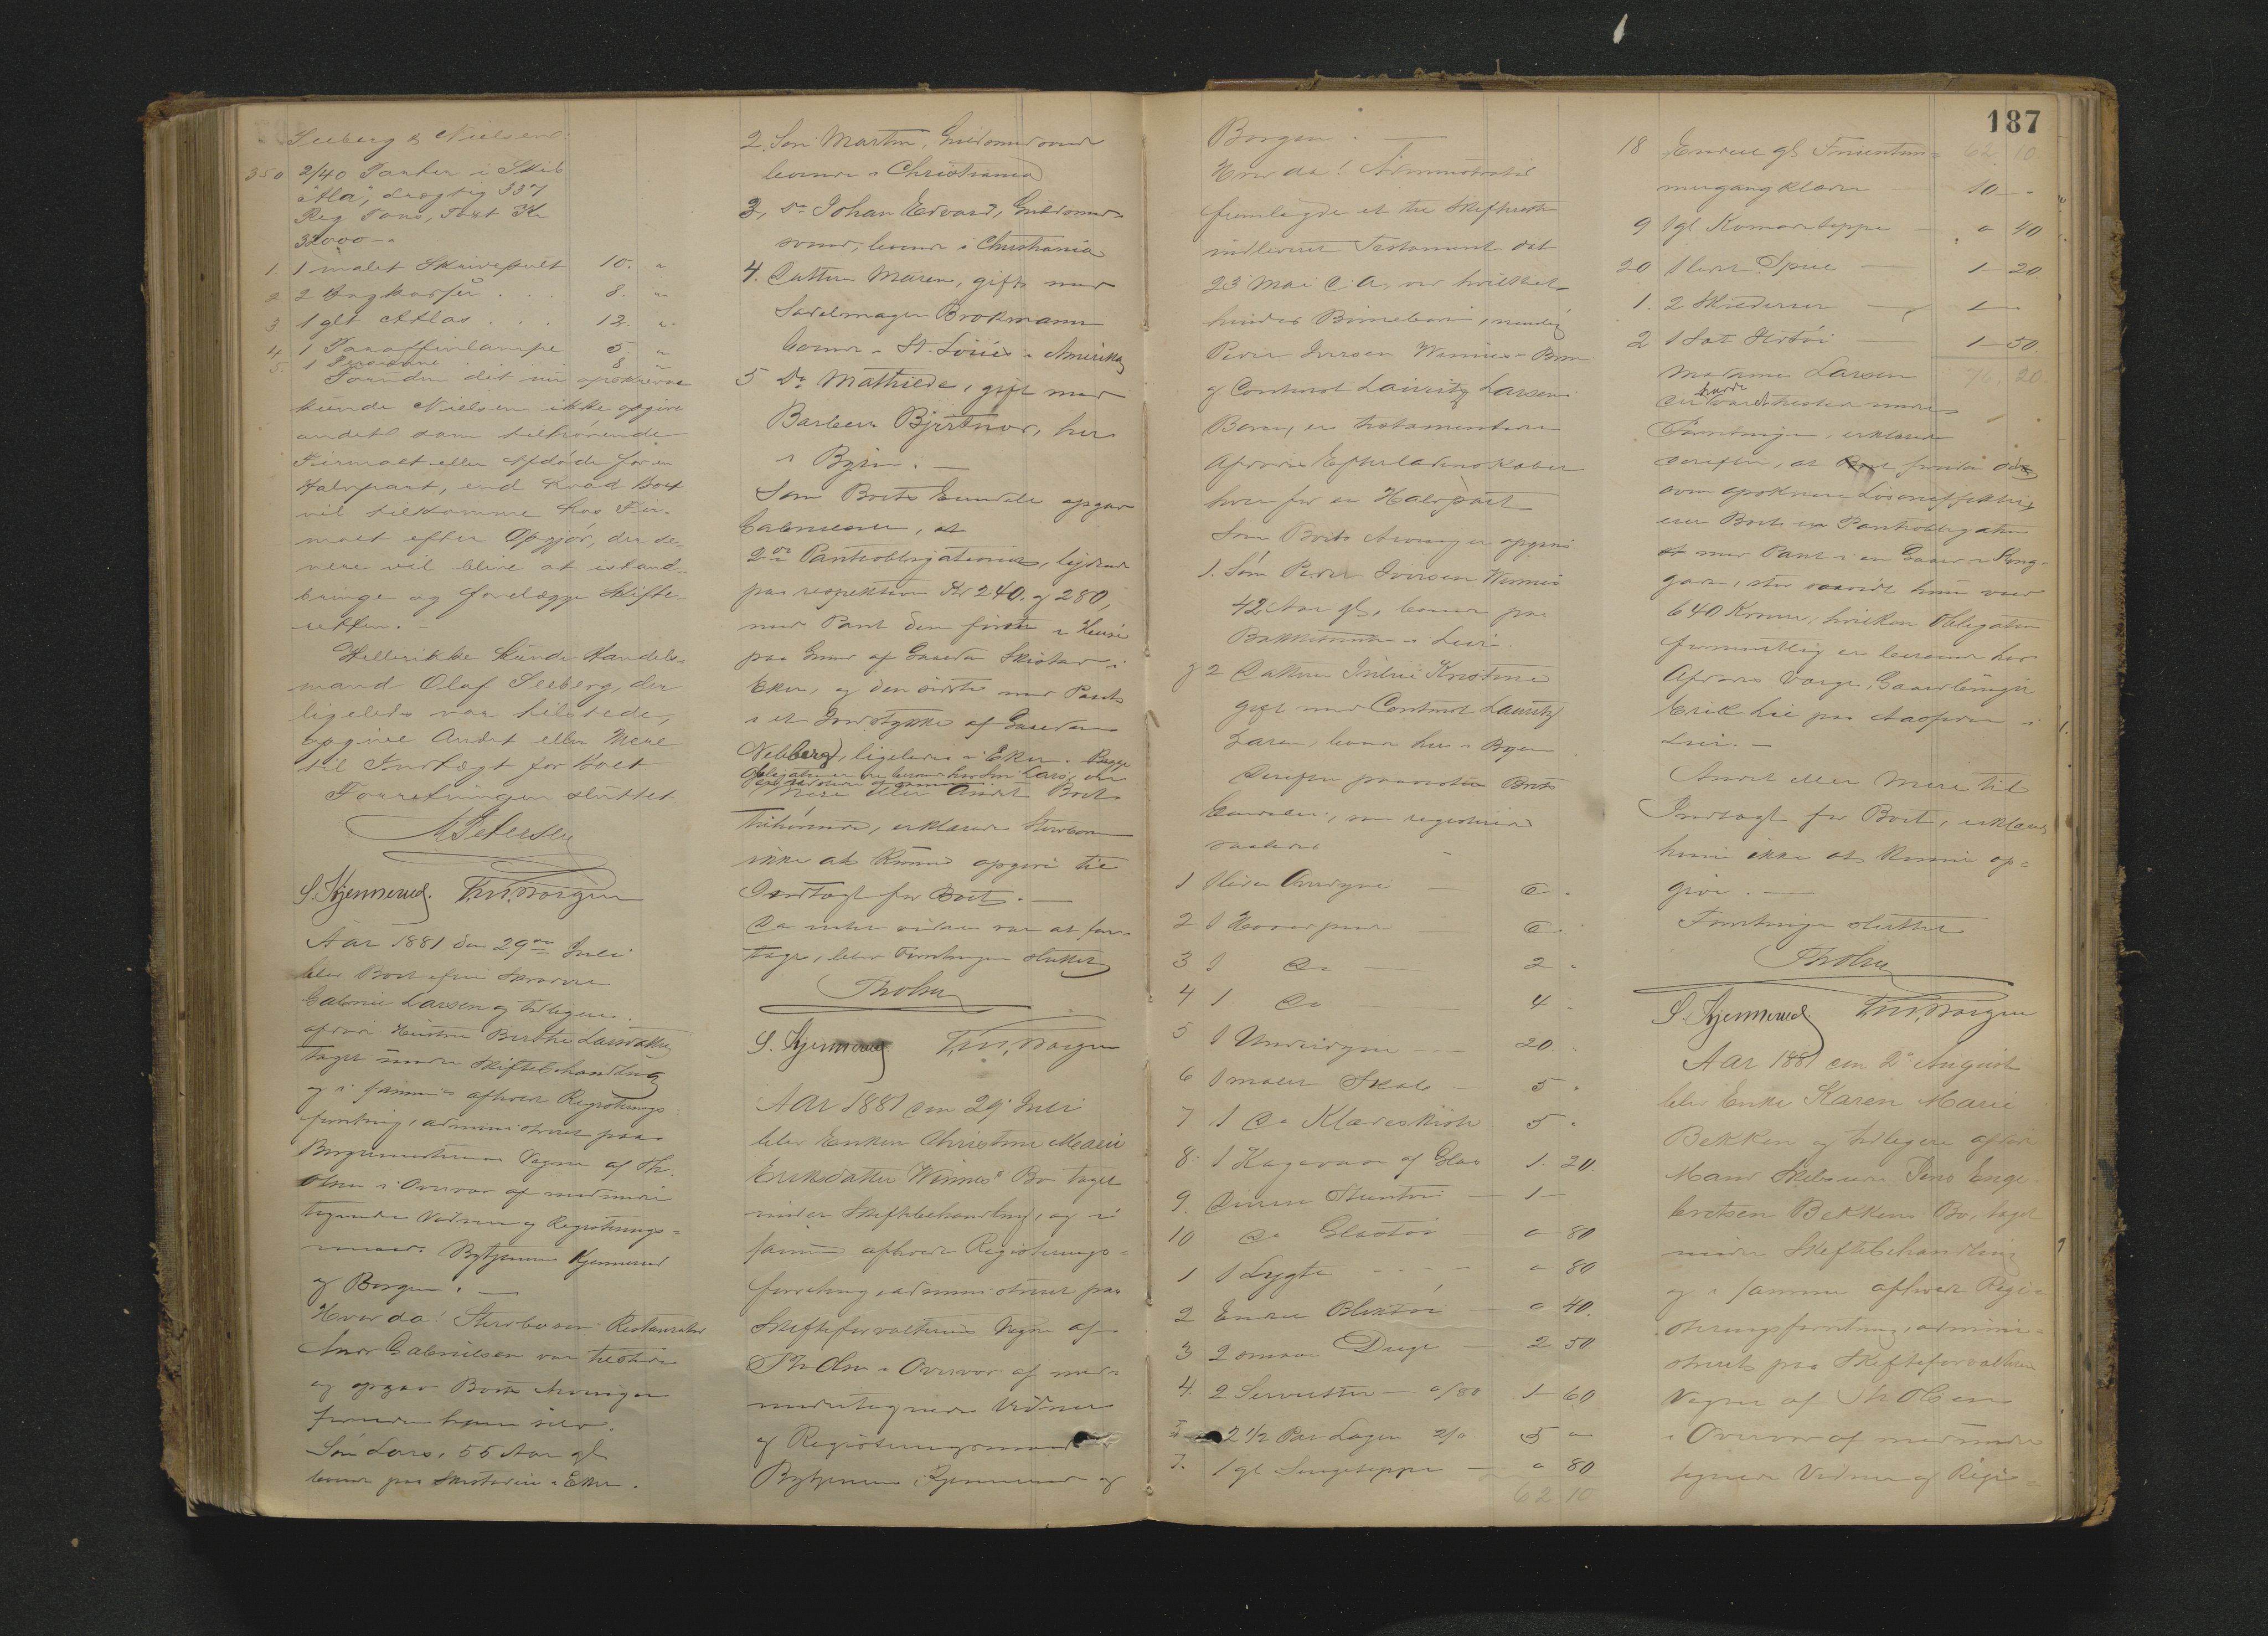 Seeberg & Nielsens.
350 2/40 Parter i Skib
"Ala", drægtig 337
Reg Tons, Taxt Kr
32000 - "
1. 1 malet Skrivepult 10. "
2 2 . . . 8. "
3 1 glt Atlas . . . 12. "
4 1 Paraffinlampe 5 "
5. 1 . . 8 "
Foruden det nu opskrevne
kunde Nielsen ikke opgive
andet som tilhørende
Firmaet eller Afdøde for en
Halvpart, end hvad Boet
vil tilkomme hos Fir-
maet efter Opgjør, der se-
nere vil blive at istand-
bringe og forelægge Skifte-
retten. -
Hellerikke kunde Handels-
mand Olaf Seeberg, der
ligeledes var tilstede,
opgive Andet eller Mere
til Indtægt for Boet.
Forretningen sluttet
S. Kjennerud. Borgen
Aar 1881 den 29de Juli
blev Boet efter
Gabriel Larsen og tidligere
afdøde Hustru Berthe Larsdatter
taget under Skiftebehandling
og i samme afholdt Registrerings-
forretning, administreret paa
Borgermesterens Vegne af Th.
Olsen i Overvær af medunder-
tegnede Vidner og Registrerings-
mænd. Bytjenerne Kjennerud
og Borgen. -
Hvorda! Sterboson Restauratør
Gabrielsen var tilstede
og opgav Boets Arvinger
foruden ham selv.
Søn Lars, 55 Aar gl
boende paa i Eker.
2. Søn Martin, Guldsmedsvend
boende i Christiania
3, do Johan Edvard, Guldsmed-
svend, boende i Christiania
4. Datter Maren, gift med
Sadelmager Brokmann
boende i St. Louis i Amerika
5 Do Mathilde, gift med
Barbeer Bjertnæs, her
i Byen. -
Som Boets Eiendele opgav
Gabrielsen, at
2de Pantobligationer, lydende
paa respektive Kr 240. og 280,
med Pant den første i Huse
paa Grund af Gaarden i
Eker, og den sidste med Pant
i et Jordstykke af Gaarden
Nebberg, ligeledes i Eker. Begge
Obligationer ere beroende hos Søn Lars,
Mere eller Andet Boet
tilhørende, erklærede Sterboson
ikke at kunne opgive til
Indtægt for Boet. -
Da intet videre var at fore-
tage, blev Forretningen sluttet
Th Olsen
S. Kjennerud Borgen
Aar 1881 den 29 Juli
blev Enken Christine Marie
Eriksdatter Winnes's Bo taget
under Skiftebehandling, og i
samme afholdt Registrerings-
forretning, administreret paa
Skifteforvalterens Vegne af
Th Olsen i Overvær af med-
undertegnede Vidner
og Registreringsmænd
Bytjenerne Kjennerud og
187
Borgen. -
Hvorda! Administrator
fremlagde et til Skifteretten
indleveret Testament dat
23 Mai d. A, ved hvilket
hendes Børnebørn, nemlig
Peder Iversen Winnes's Børn
og Contorist Lauritz Larsens
Børn, er testamenteret
Afdødes Efterladenskaber
hver for en Halvpart
Som Boets Arvinger opgives
1. Søn Peder Iversen Winnes
42 Aar gl, boende paa
i Lier.
og 2 Datter Juliie Kristine
gift med Contorist Lauritz
Larsen, boende her i Byen
Derefter paavistes Boets
Eiendele, som registreredes
saaledes
1 1 liden Overdyne - 6 "
2 1 Hovedpude - 6.
3 1 Do - 2 "
4 1 Do - 4 "
5 1 Underdyne - - 20. "
6 1 malet Skab - 5 "
7 1 Do Klædeskiste 5 "
8. 1 Kagevase af Glas 1. 20.
9. Diverse Stentøi - 1 -
10 Do Glastøi - " 80
1 1 Lygte - - - - " 80
2 Endel Bliktøi - " 40.
3 2 smaa Duge - 2 50
4. 2 Servietter - a/80 1 60
5 2 1/2 Par Lagen 2/0 5 "
7. 1 gl Sengeteppe - " 80
62 10
18 Endel gl Fruentim- 62. 10.
mergangklæder - 10 - "
9 1 gl Komodeteppe - " 40
20 1 Speil - 1 20
1. 2 - 1 "
2 1 Sæt - 1 50
Madame Larsen 20
der havde været tilstede under
Forretningen, erklærede
derefter, at foruden de
som opskrevne Løsøreeffekter
eier Boet en Pantobligation
med Pant i en Gaard i Kong-
gaden, stor saavidt hun ved
640 Kroner, hvilken Obligation
formentlig er beroende hos
Afdødes Værge, Gaardbruger
Erik Lie paa i
Lier. -
Andet eller Mere til
Indtægt for Boet, erklærede
hun ikke at kunne op-
give. -
Forretningen sluttet
Th Olsen
S. Kjennerud. Borgen
Aar 1881 den 2 August
blev Enke Karen Marie
Bekken og tidligere afdøde
Mand Jens Enge-
bretsen Bekkens Bo, taget
under Skiftebehandling
og i samme afholdt Regi-
streringsforretning, admini-
streret paa Skifteforvalterens
Vegne af Th Olsen
i Overvær af medunder-
tegnede Vidner og Regi-